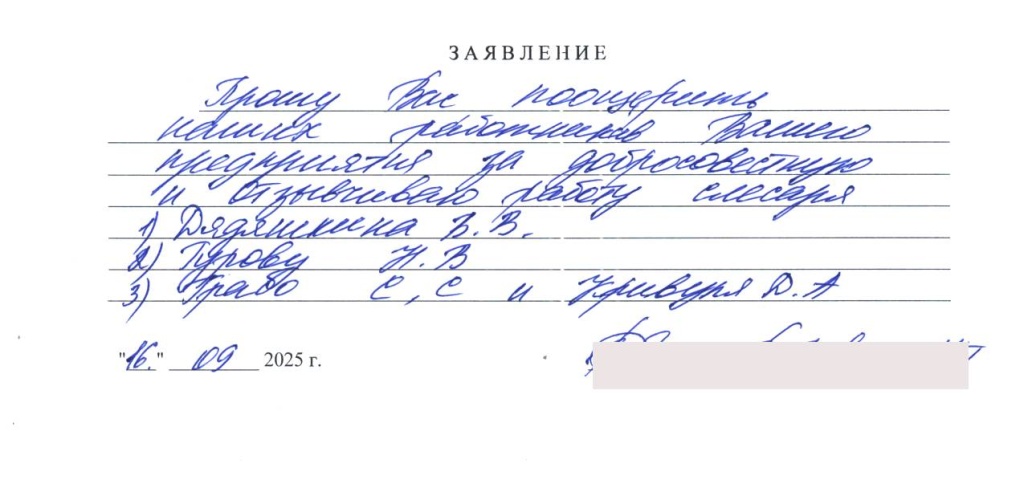 ЗАЯВЛЕНИЕ
Прошу Вас поощерить
наших работников Вашего
предприятия за добросовестную
и отзывчиваю работу слесаря
1) Дядяшкина В.В.
2) Гурову Н.В
3) Грабо С,С и Кривуля Д.А
"16." 09 2025 г.